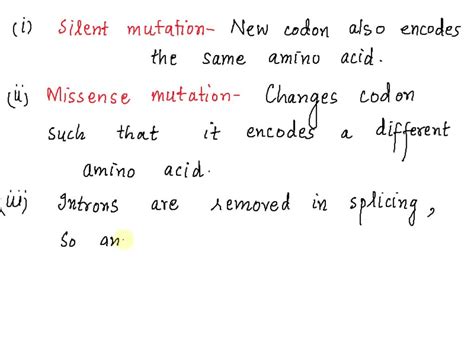 (i) Silent mutation- New codon also encodes
the same amino acid.
(ii) Missense mutation- Changes codon
such that it encodes a different
amino acid.
iii) Introns are removed in splicing,
so an